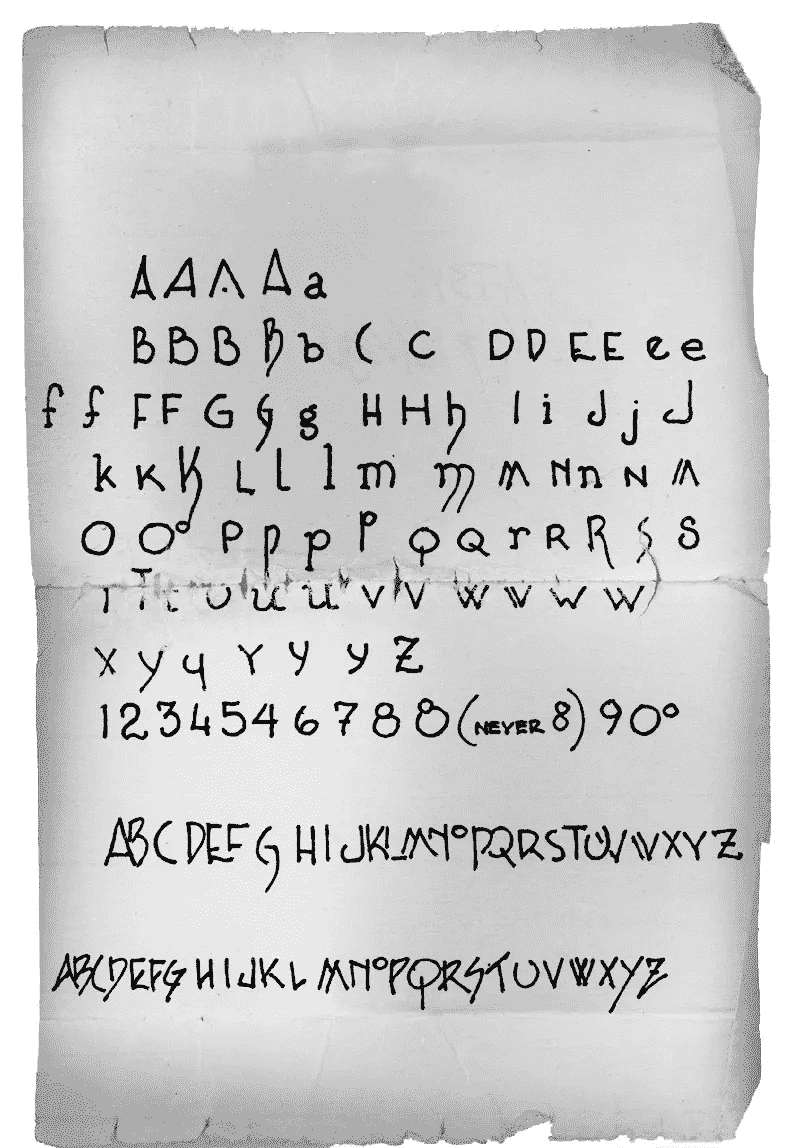 A A A A a
B B B B b C C D D E E e e
f f F F G G g H H h I i J j J
k K K L l l m m M N n N M
O O° P p p P Q Q r R R S S
T T t U u u v V w w w w
X y y Y y y Z
1 2 3 4 5 4 6 7 8 8 (NEVER 8) 9 0°
A B C D E F G H I J K L M N O P Q R S T U V W X Y Z
A B C D E F G H I J K L M N O P Q R S T U V W X Y Z